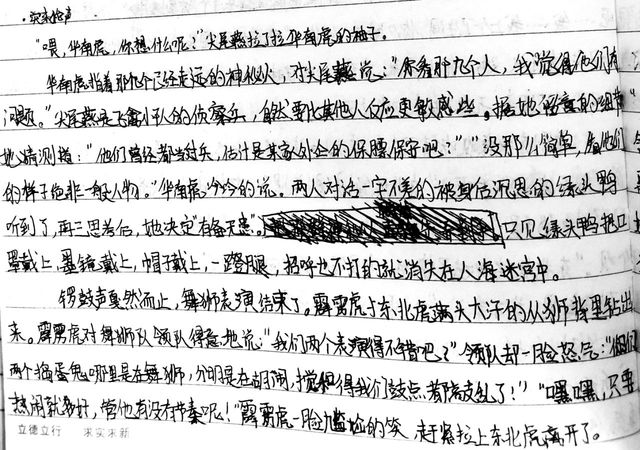 ·实求抢声
"喂,华南虎,你想什么呢?"尖尾燕拉了拉华南虎的袖子。
华南虎指着那九个已经走远的神秘人,对尖尾燕说:"你看那九个人,我觉得他们有
问题。"尖尾燕是飞禽小队的侦察兵,自然要比其他人反应更敏感些。据她留意的细节
她猜测道:"他们曾经都当过兵,估计是某家外企的保膘保安吧?""没那么简单,看他们
的样子绝非一般人物。"华南虎冷冷的说。两人对话一字不差的被身后沉思的绿头鸭
听到了,再三思考后,她决定"有备无患"。只见绿头鸭把口
罩戴上,墨镜戴上,帽子戴上,一蹬腿,招呼也不打的就消失在人海迷宫中。
锣鼓声戛然而止,舞狮表演结束了。霹雳虎与东北虎满头大汗的从狮背里钻出
来。霹雳虎对舞狮队领队得意地说:"我们两个表演得不错吧?"领队却一脸怒气:"你们
两个捣蛋鬼哪里是在舞狮,分明是在胡闹,搅得我们鼓点都搞乱了!""嘿嘿,只要
热闹就好,管他有没有节奏呢!"霹雳虎一脸尴尬的笑,赶紧拉上东北虎离开了。
立德立行 求实求新